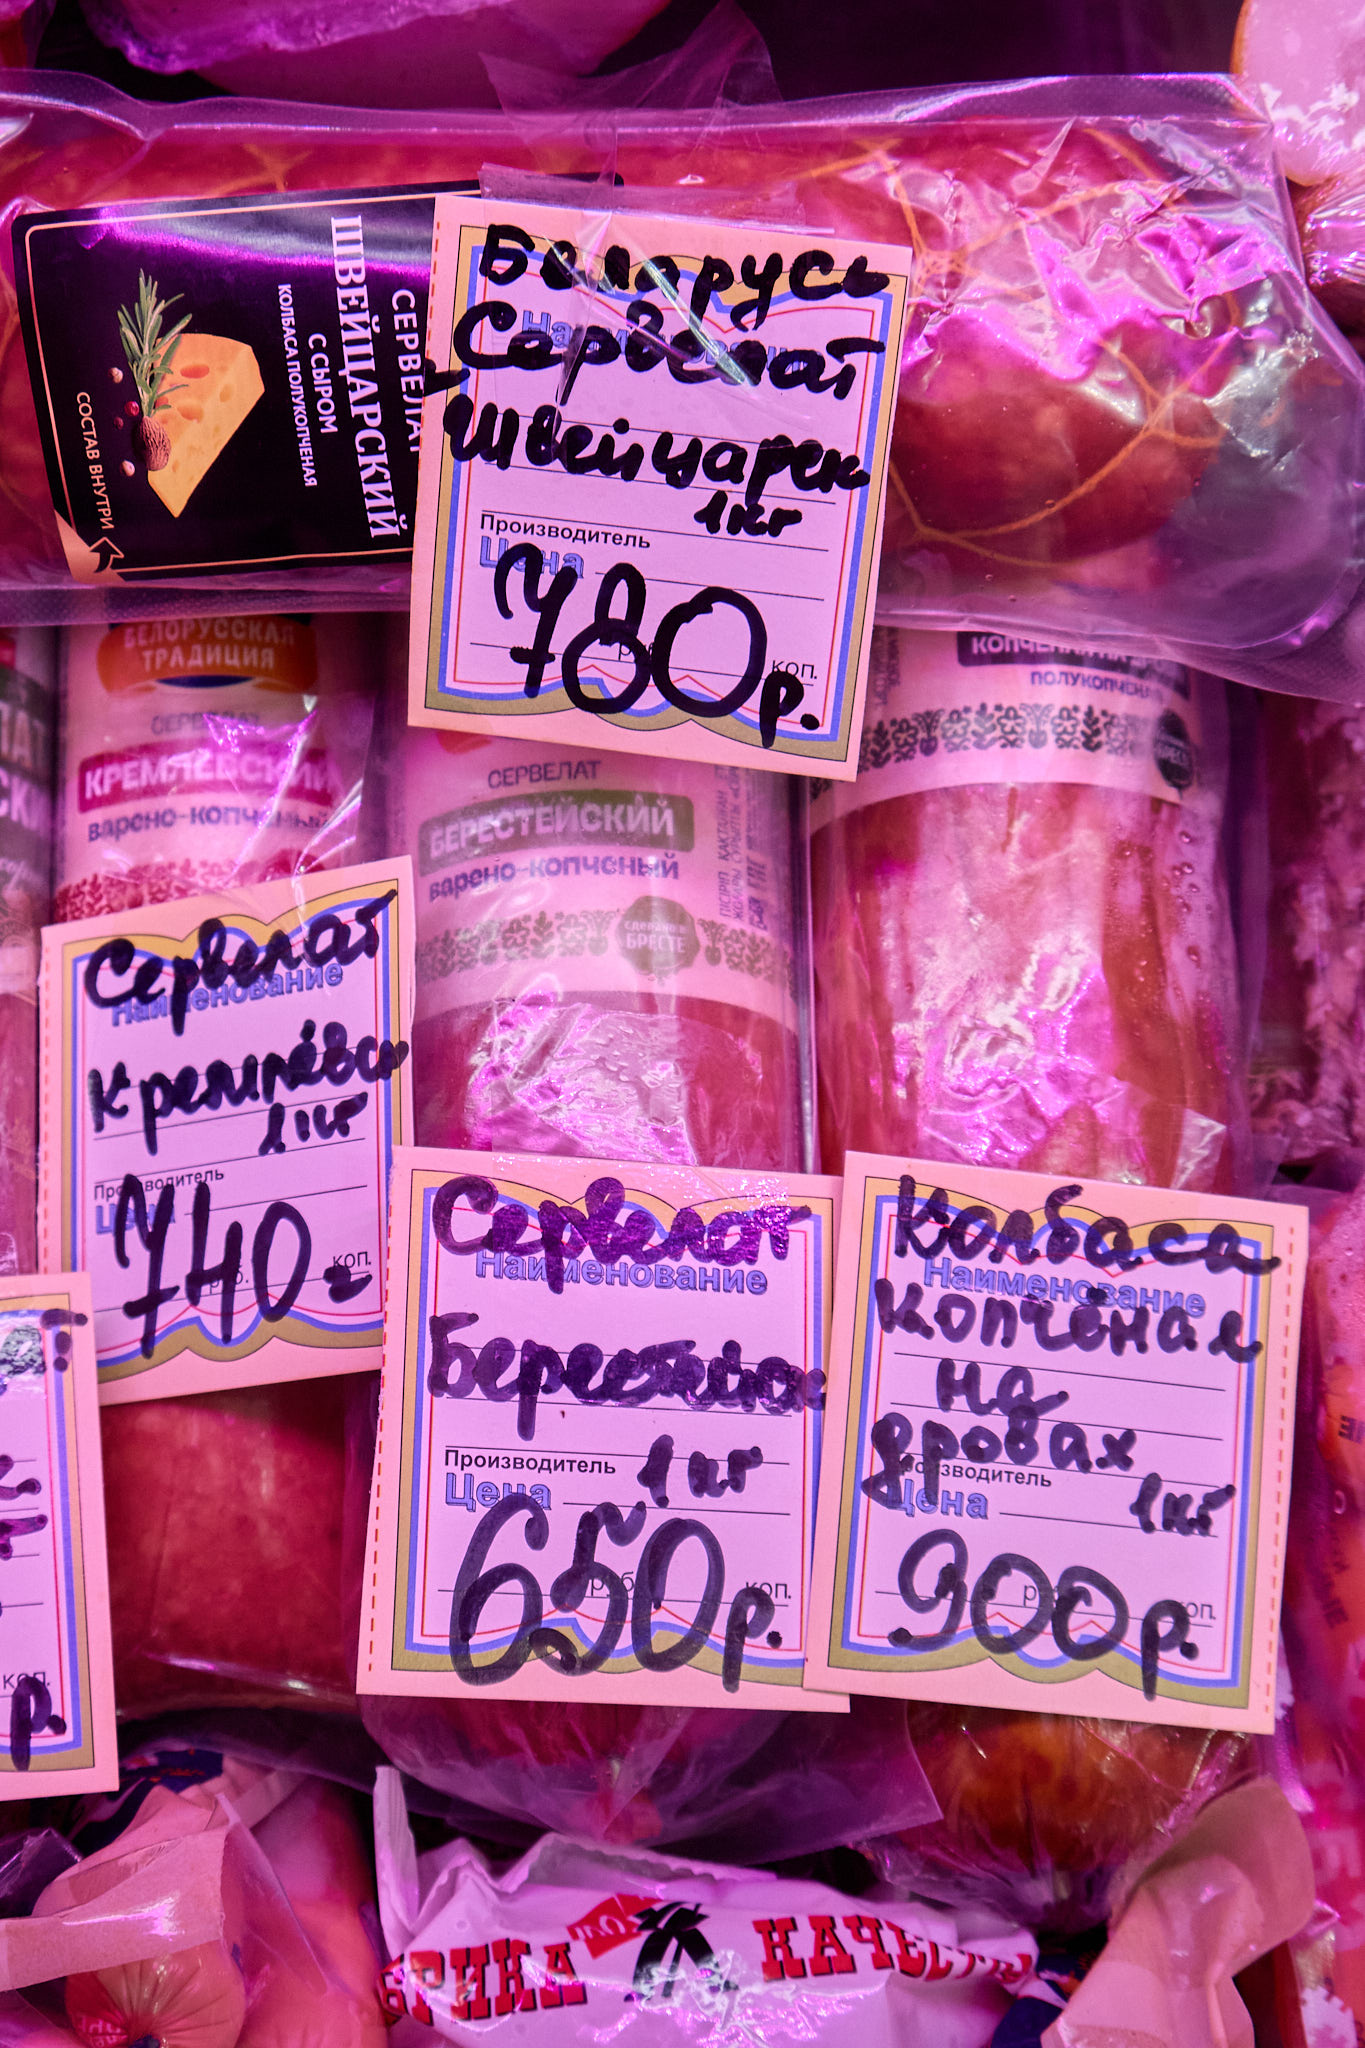 СЕРВЕЛАТ
ШВЕЙЦАРСКИЙ
С СЫРОМ
КОЛБАСА ПОЛУКОПЧЕНАЯ
СОСТАВ ВНУТРИ
Беларусь
Наименование
Сервелат
Швейцарск
1кг
Производитель
Цена
780р.
руб. коп.
БЕЛОРУССКАЯ
ТРАДИЦИЯ
СЕРВЕЛАТ
КРЕМЛЕВСКИЙ
варено-копченый
СЕРВЕЛАТ
БЕРЕСТЕЙСКИЙ
варено-копченый
СДЕЛАНО В
БРЕСТЕ
ПОЛУКОПЧЕНАЯ
Сервелат
Наименование
Кремлёвск
1кг
Производитель
Цена
740
руб. коп.
Сервелат
Наименование
Берестейск
1кг
Производитель
Цена
650р.
руб. коп.
Колбаса
Наименование
копчёная
на
дровах
Производитель
1кг
Цена
900р.
руб. коп.
коп.
р.
БРИКА КАЧЕСТВ